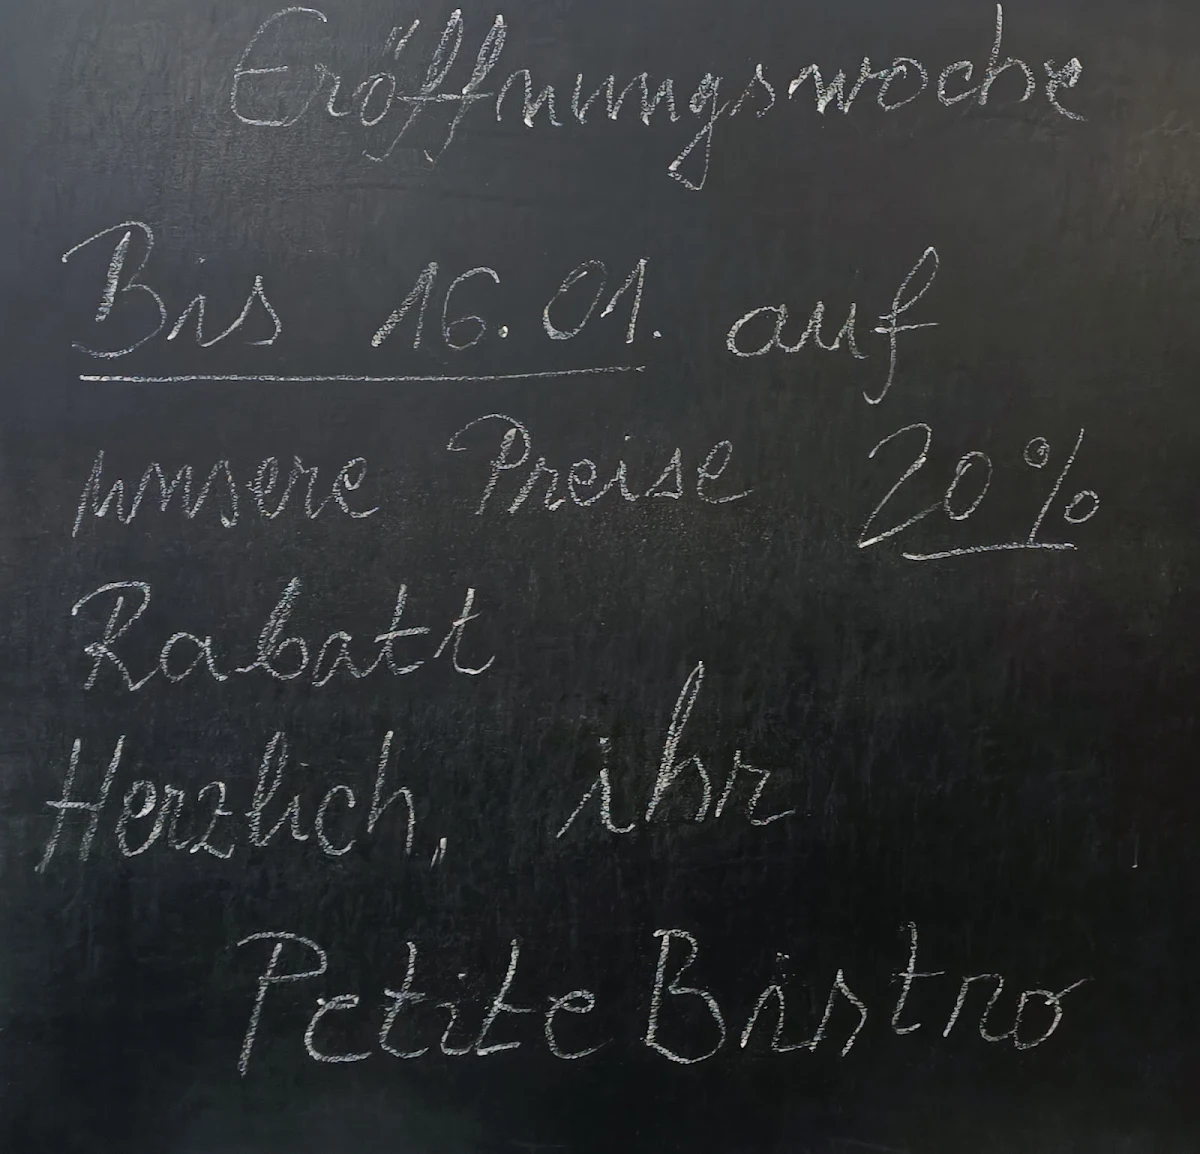 Eröffnungswoche
Bis 16.01. auf
unsere Preise 20%
Rabatt
Herzlich, ihr
Petite Bistro